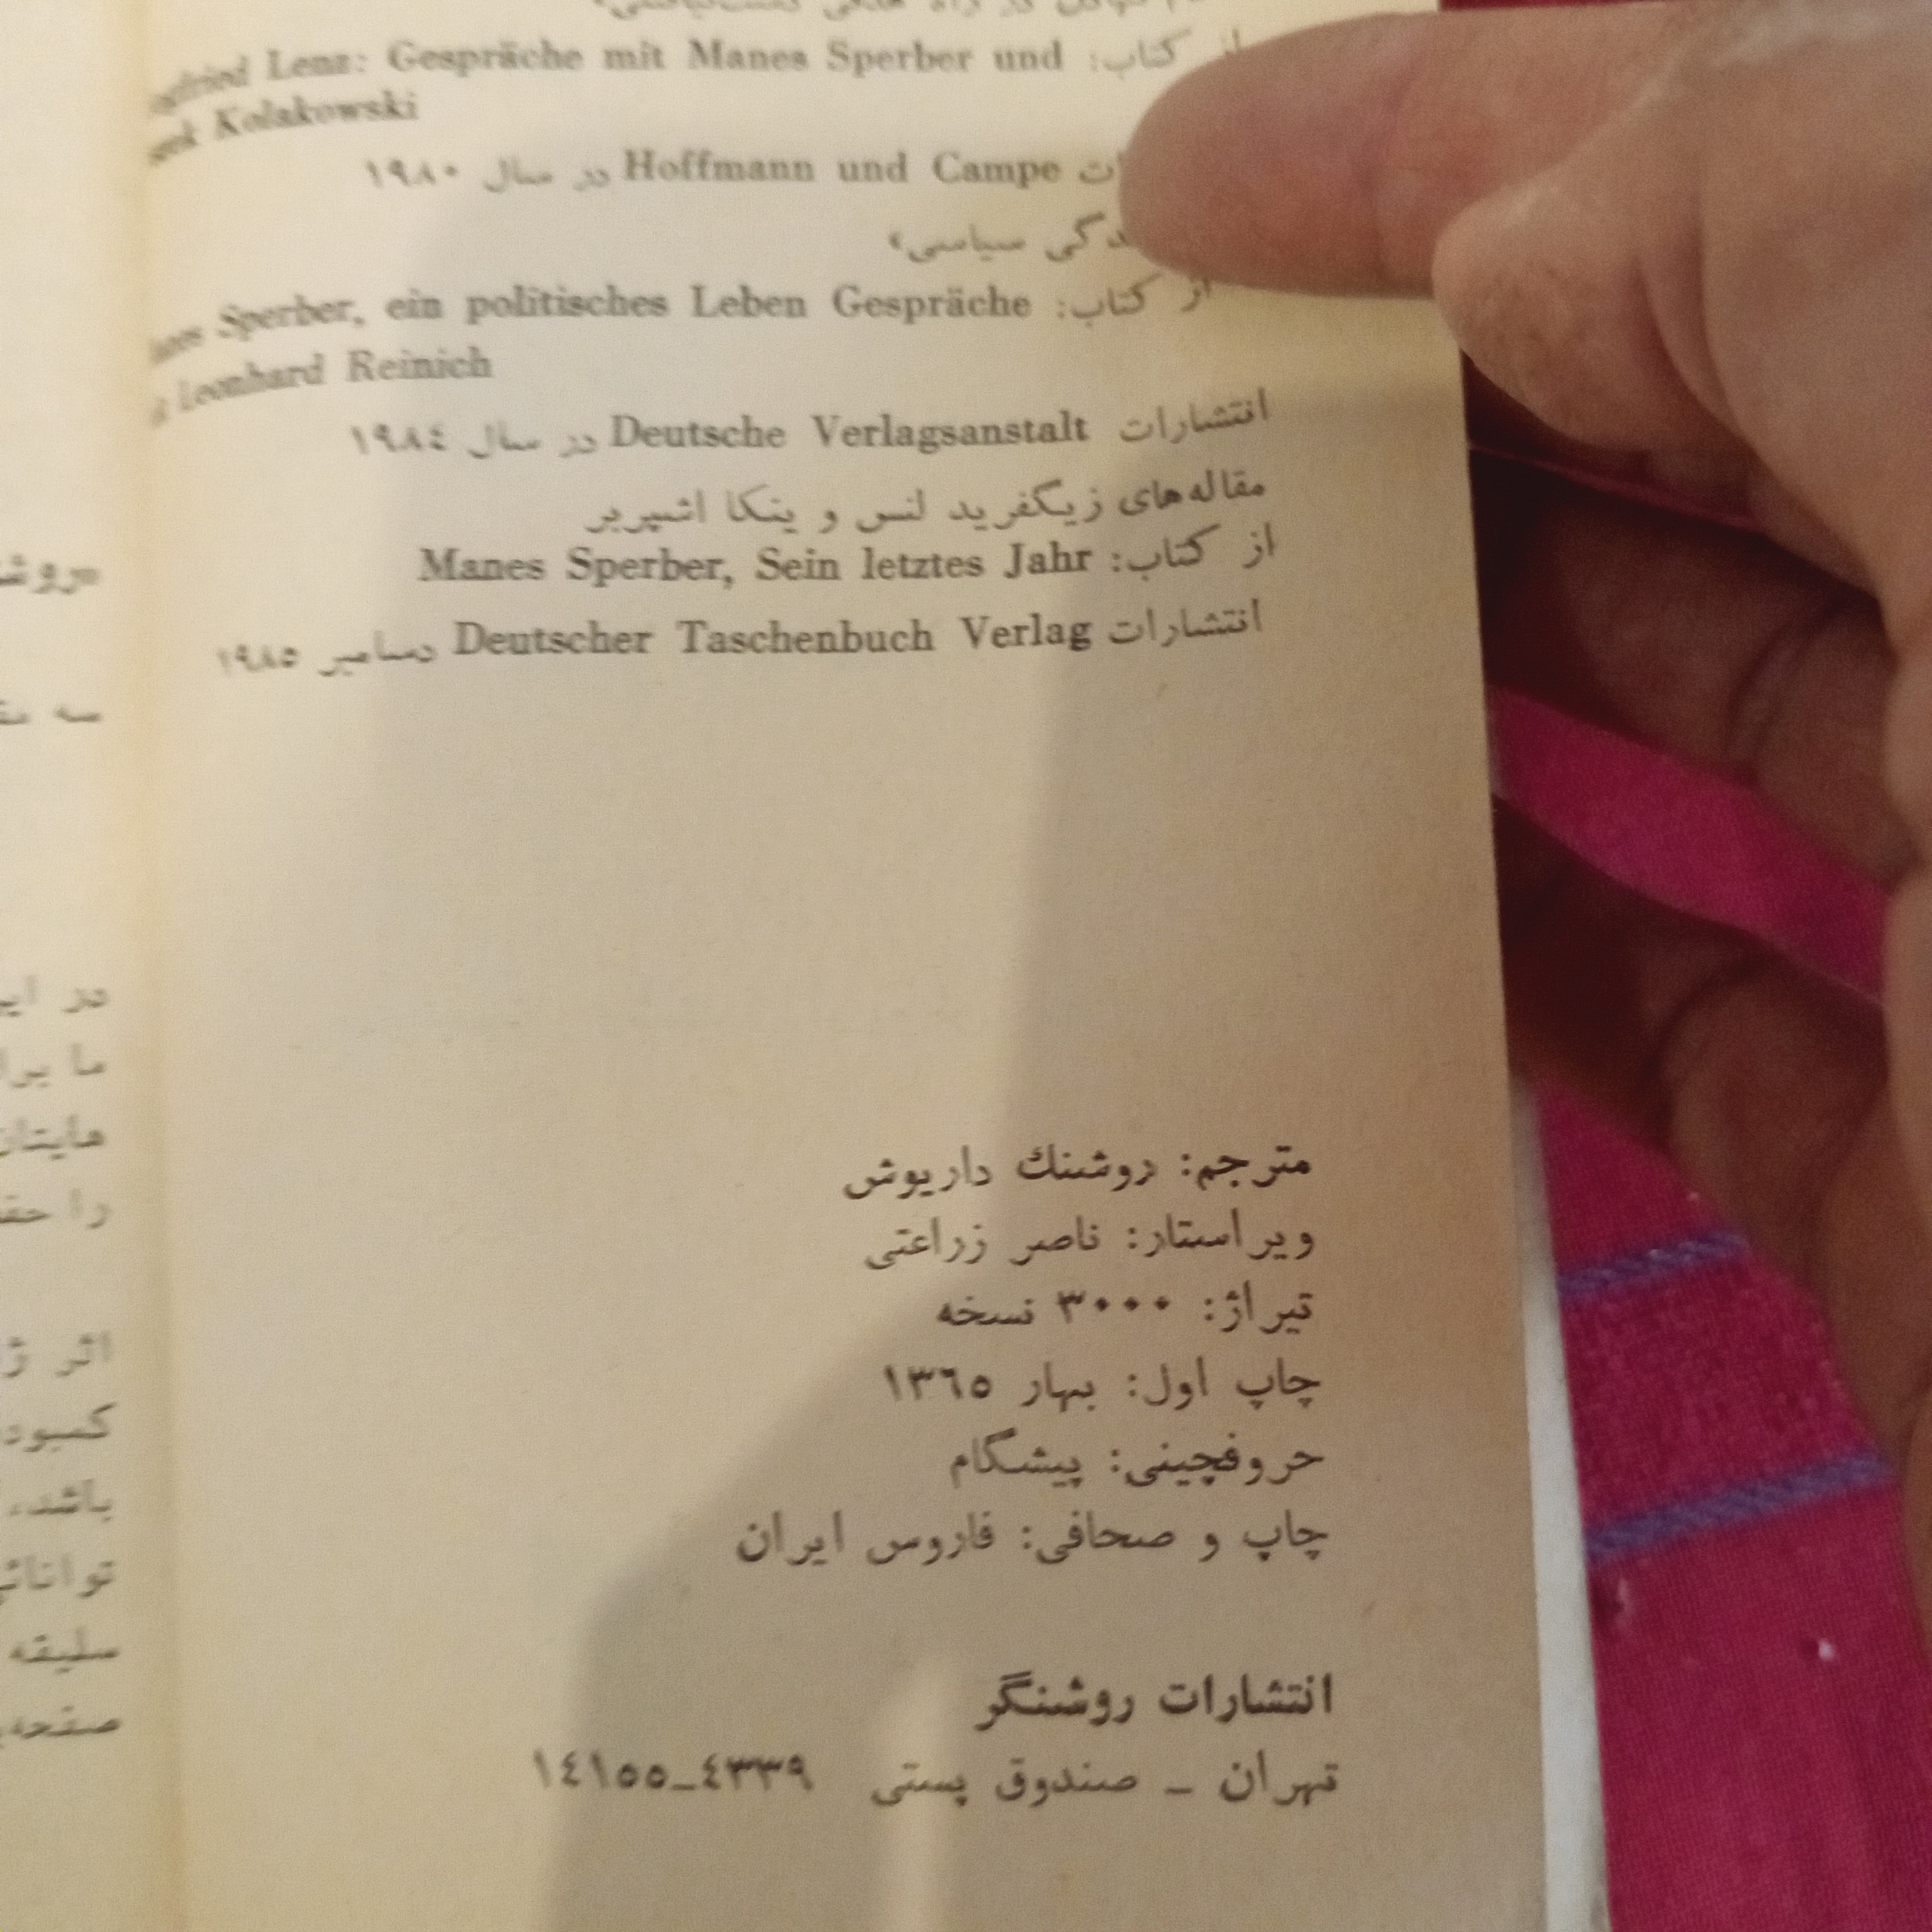 از کتاب: Lenz: Gespräche mit Manes Sperber und
Kolakowski
Hoffmann und Campe در سال ۱۹۸۰
سیاسی»
از کتاب: Sperber, ein politisches Leben Gespräche
Leonhard Reinich
انتشارات Deutsche Verlagsanstalt در سال ۱۹۸٤
مقاله‌های زیگفرید لنس و ینکا اشپربر
از کتاب: Manes Sperber, Sein letztes Jahr
انتشارات Deutscher Taschenbuch Verlag دسامبر ۱۹۸۵
مترجم: روشنك داریوش
ویراستار: ناصر زراعتی
تیراژ: ۳۰۰۰ نسخه
چاپ اول: بهار ۱۳٦۵
حروفچینی: پیشگام
چاپ و صحافی: فاروس ایران
انتشارات روشنگر
تهران ـ صندوق پستی ٤۳۳۹ـ۱٤۱۵۵
سه
در
ما
هایتان
را
اثر
باشد،
سلیقه